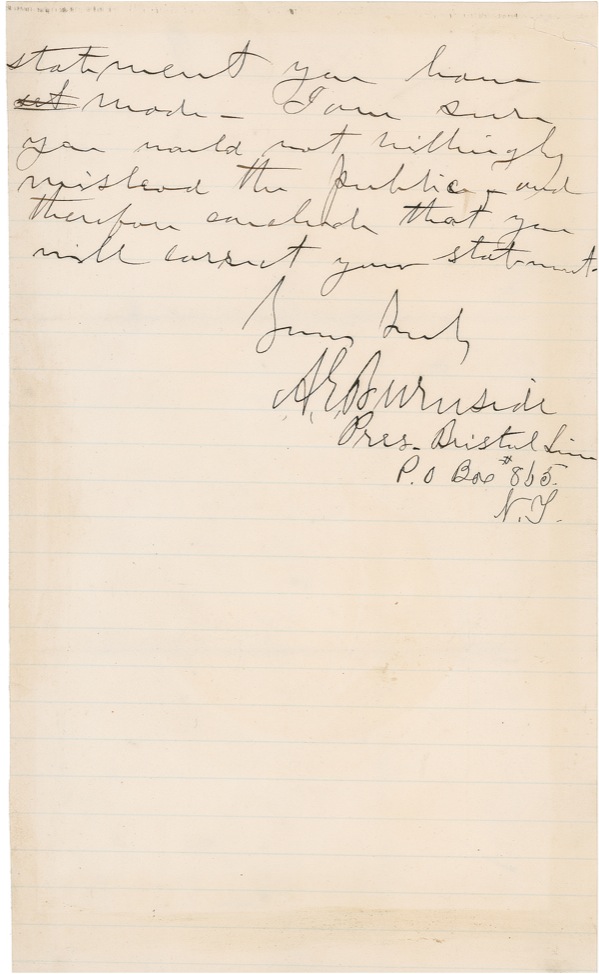 statement you have
set made - I am sure
you would not willingly
mislead the public - and
therefore conclude that you
will correct your statement.
Yours truly
A. E. Burnside
Pres. Bristol Line
P.O Box #865.
N.Y.